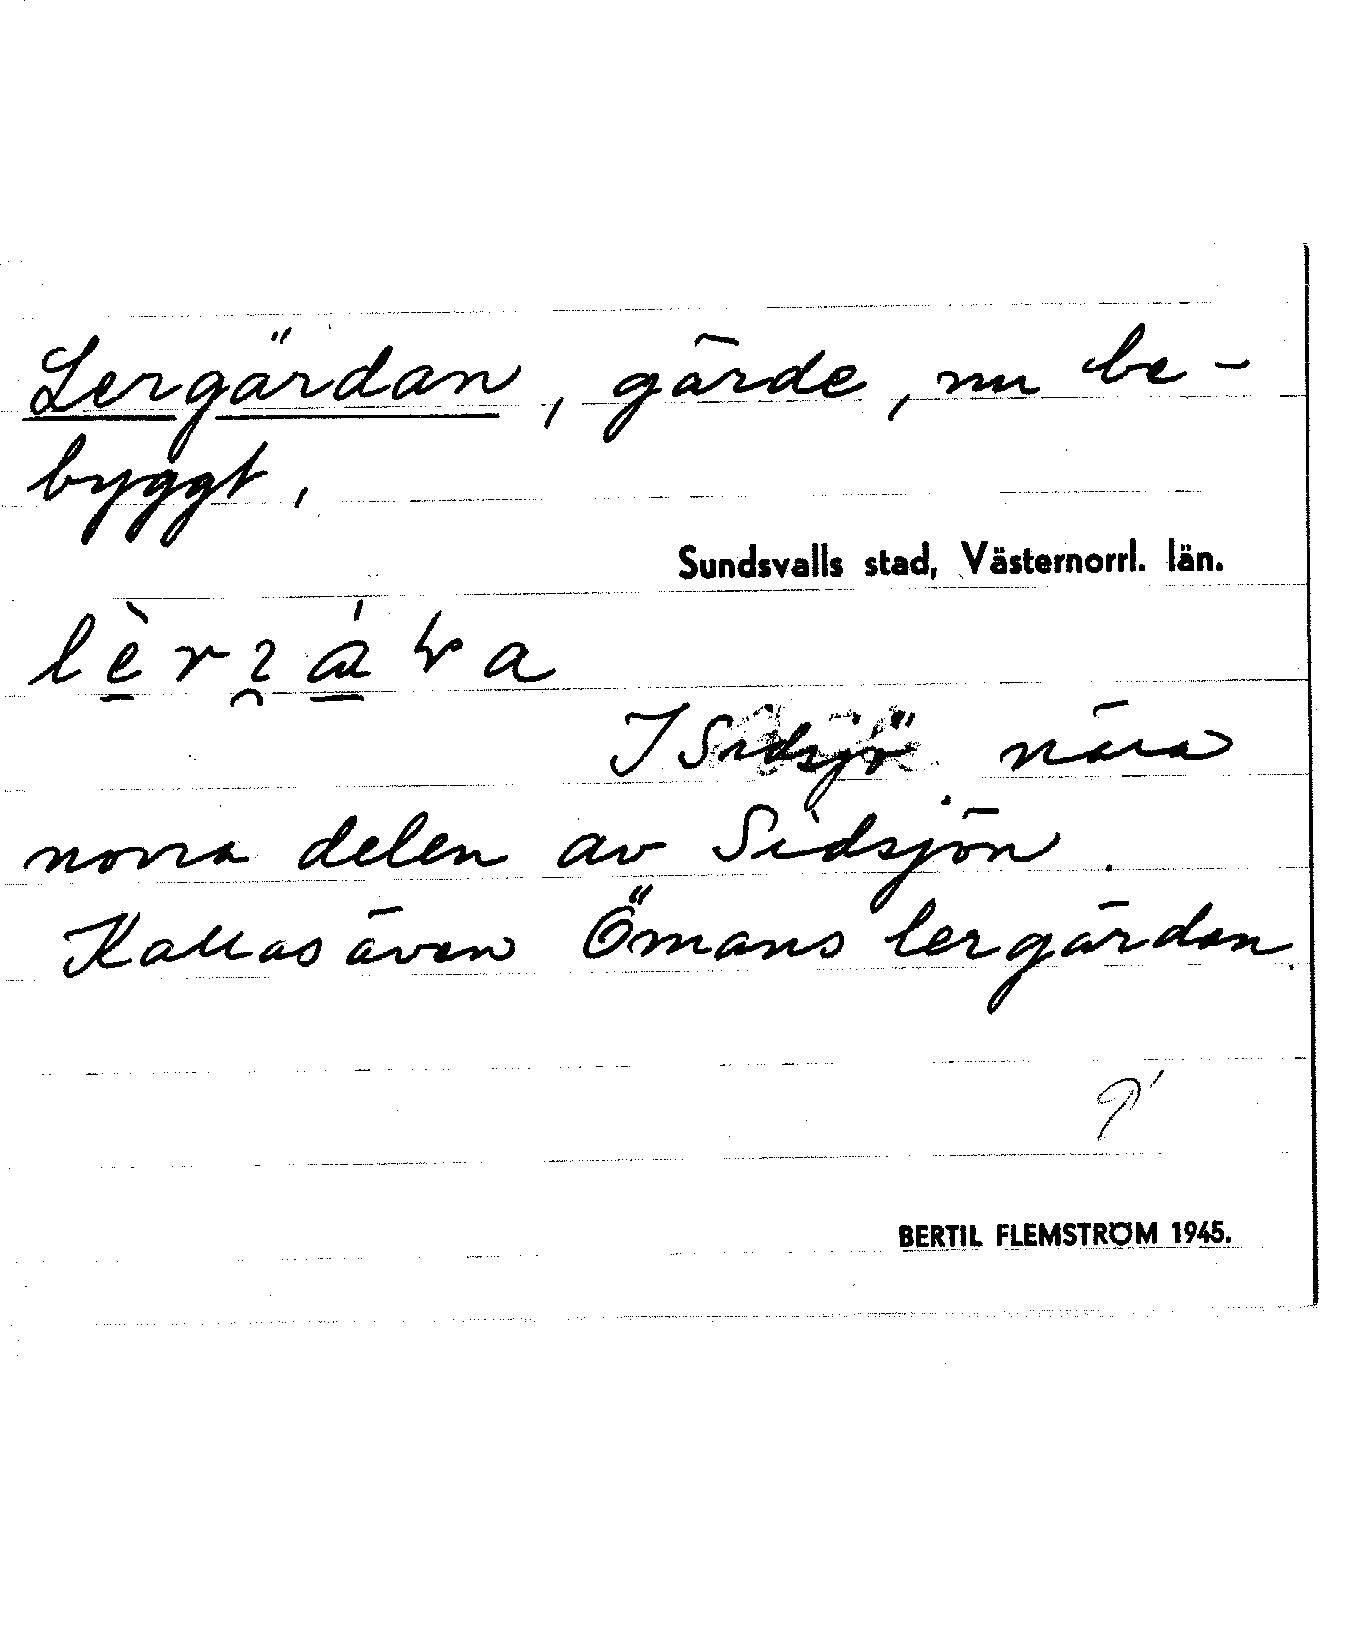 Lergärdan, gärde, nu be-
byggt,
Sundsvalls stad, Västernorrl. län.
I Sidsjö nära
norra delen av Sidsjön.
Kallas även Ömans lergärdan.
BERTIL FLEMSTRÖM 1945.